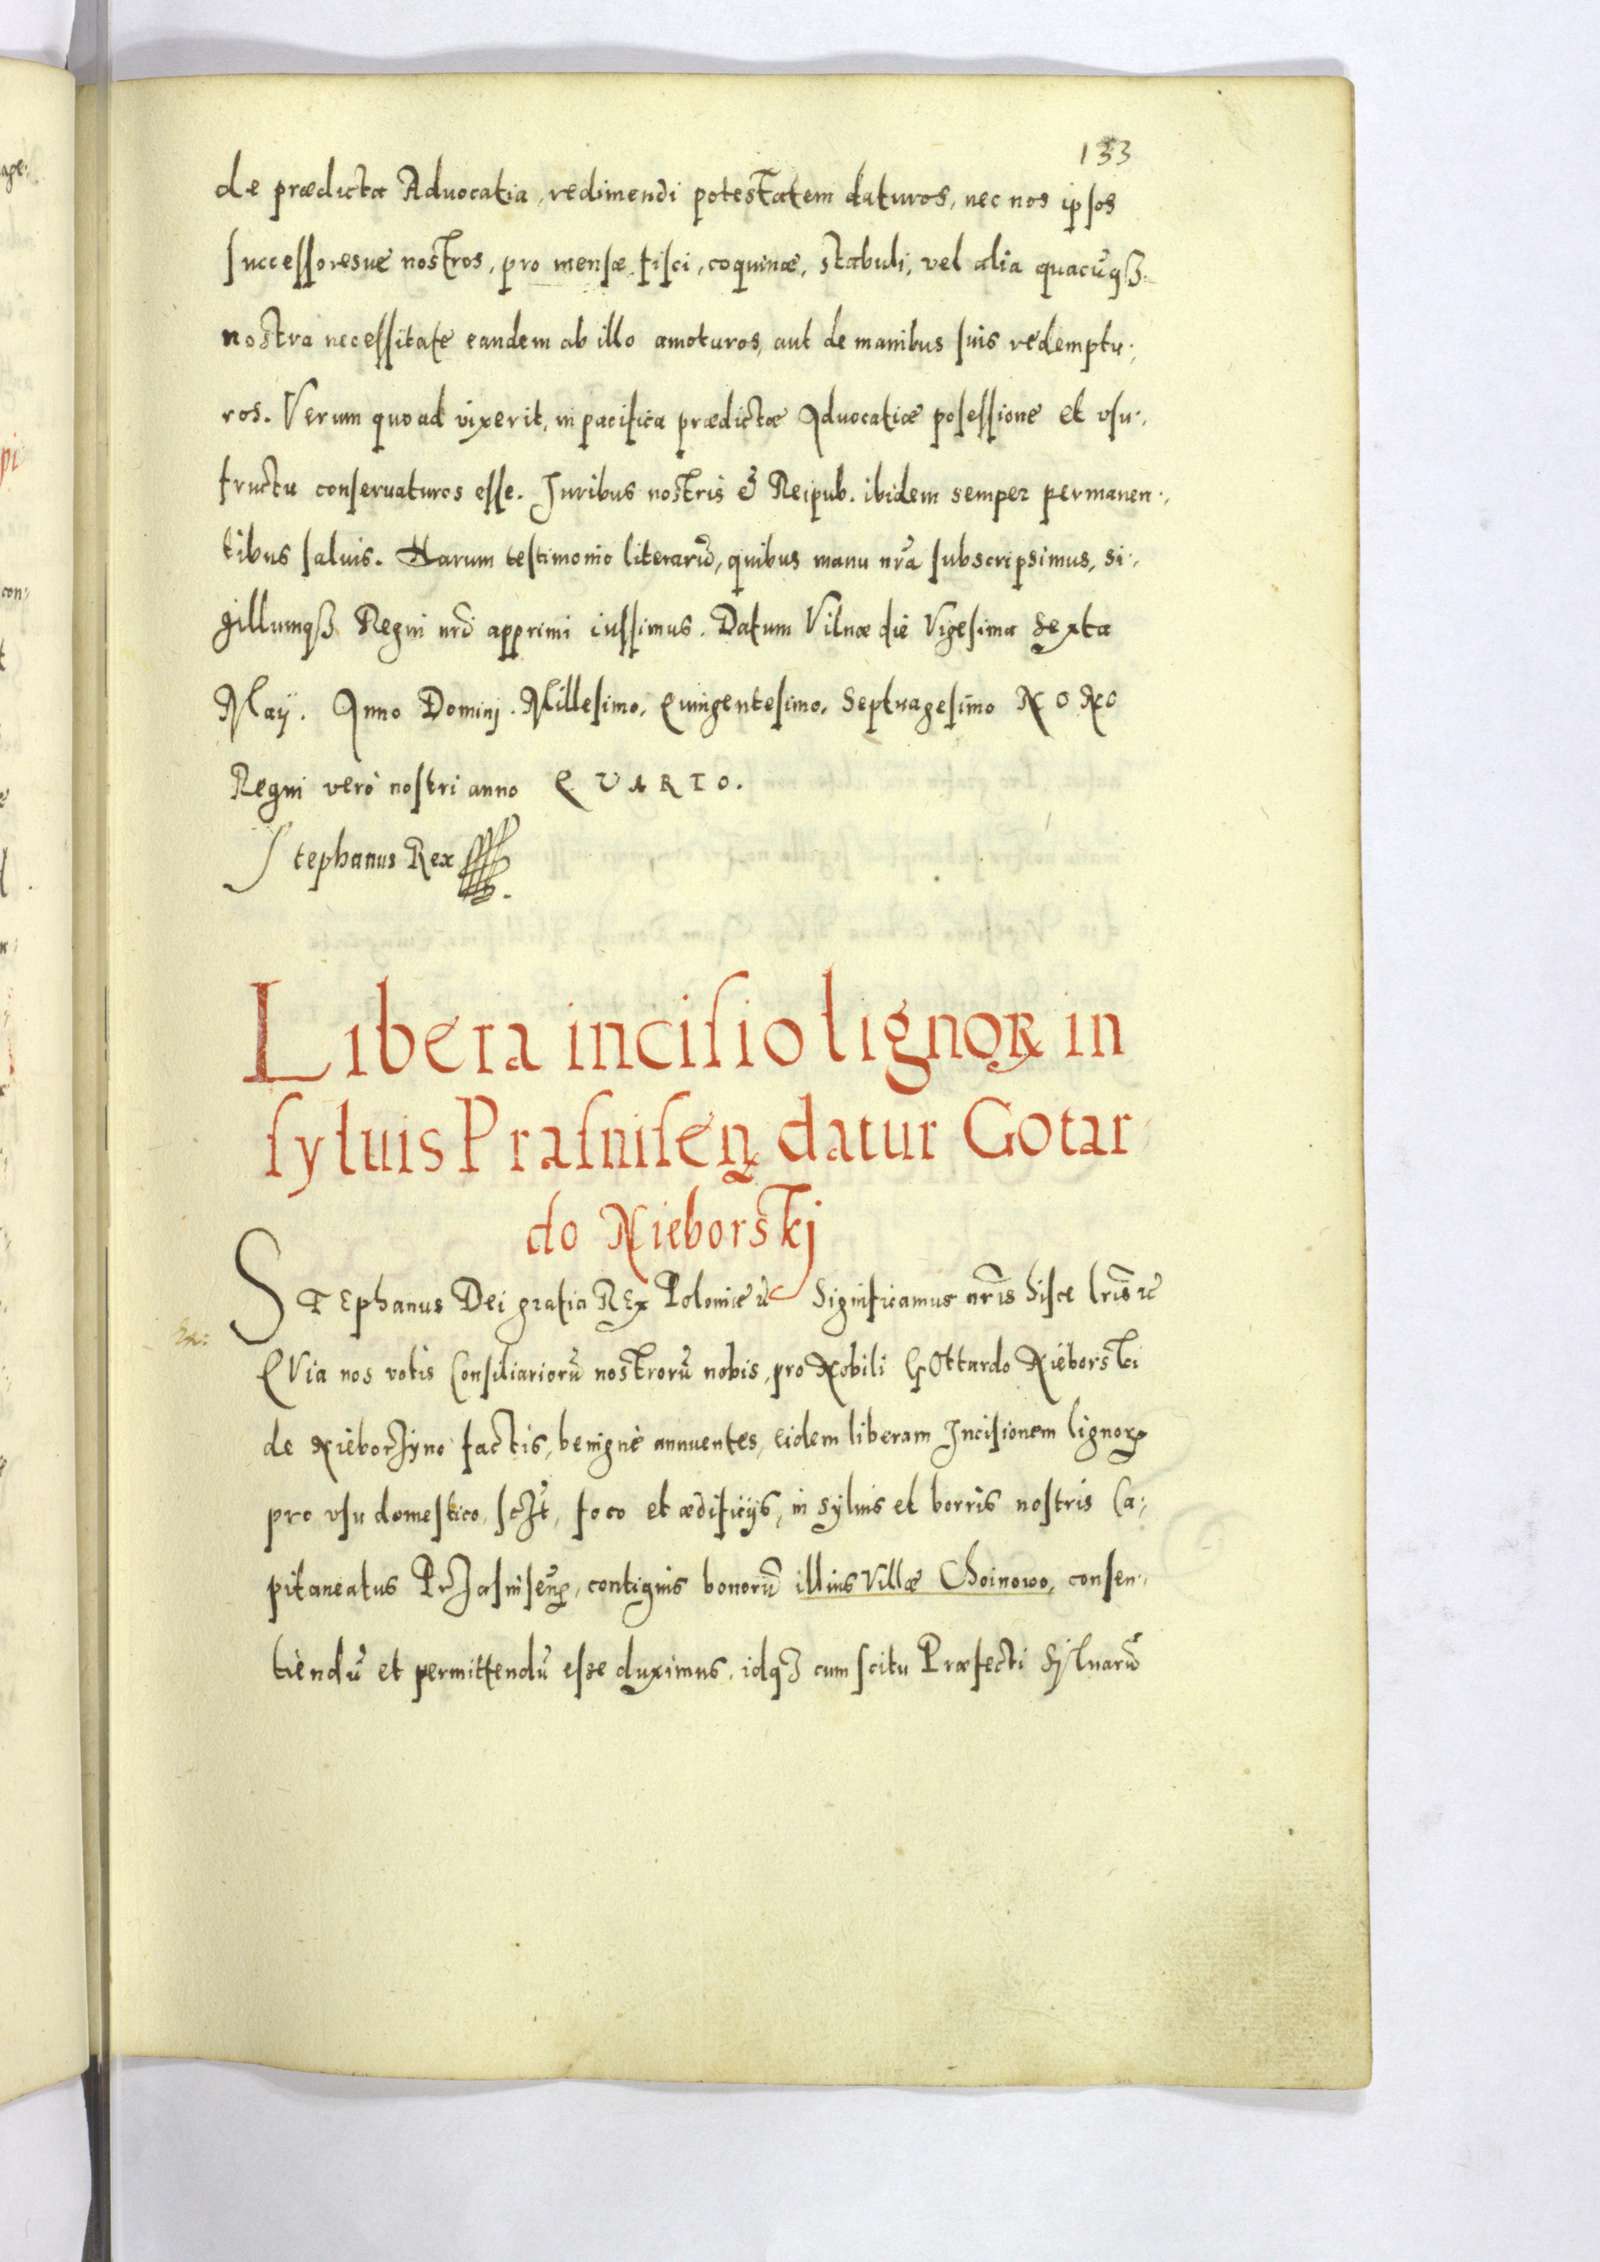 133
de prædicta Aduocatia, redimendi potestatem daturos, nec nos ipsos
successoresue nostros, pro mensæ fisci, coquinæ, stabuli, vel alia quacūqß.
nostra necessitate eandem ab illo amoturos, aut de manibus suis redemptu:,
ros. Verum quoad vixerit, in pacifica prædictæ Aduocatiæ posessione et vsu:,
fructu conseruaturos esse. Juribus nostris & Reipub. ibidem semper permanen:,
tibus saluis. Harum testimonio literarū, quibus manu nrā subscripsimus, si:,
gillumqß Regni nrī apprimi iussimus. Datum Vilnæ die Vigesima Sexta
Maij. Anno Domini. Millesimo, Quingentesimo, Septuagesimo NONO
Regni verò nostri anno QVARTO.
Stephanus Rex
Libera incisio lignoꝝ in
syluis Prasnisen̄ datur Gotar
do Nieborskj
STEphanus Dei gratia REx Poloniæ &c Significamus nrīs hisce lrīs &c
QVia nos votis Consiliariorū nostrorū nobis, pro Nobili GOttardo Nieborski
de Nieborzyno factis, benignè annuentes, eidem liberam Incisionem lignoꝝ
pro vsu domestico, sczt, foco et ædificijs, in syluis et borris nostris Ca:,
pitaneatus Przasnisen̄, contiguis bonorū illius Villæ Choinowo, consen:,
tiendū et permittendū esse duximus, idqꝫ cum scitu Præfecti Syluarū